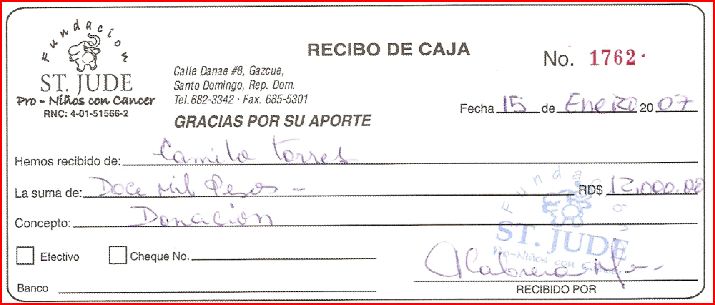 Fundacion
ST. JUDE
Pro - Niños con Cancer
RNC: 4-01-51566-2
RECIBO DE CAJA
No. 1762
Calle Danae #8, Gazcue,
Santo Domingo, Rep. Dom.
Tel. 682-3342 · Fax. 685-5301
GRACIAS POR SU APORTE
Fecha 15 de Enero 2007
Hemos recibido de: Camilo Torres
La suma de: Doce mil pesos RD$ 12,000.00
Concepto: Donación
Fundacion
ST. JUDE
Pro-Niños con
Efectivo Cheque No.
Banco
RECIBIDO POR